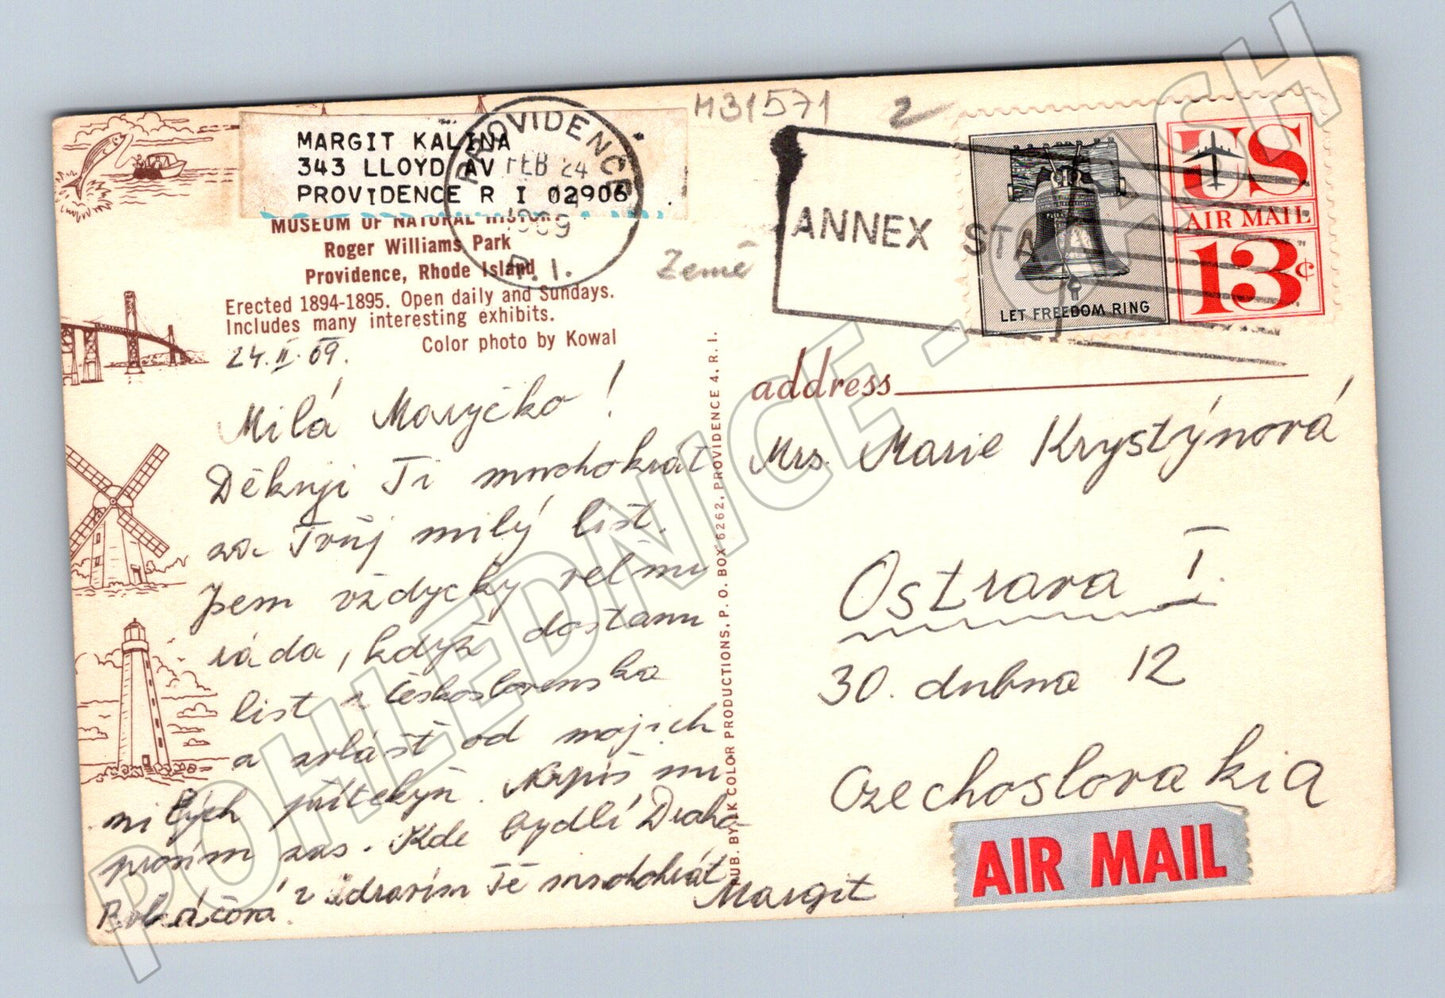 M31571 2
MARGIT KALINA
343 LLOYD AV
PROVIDENCE R I 02906
PROVIDENCE
FEB 24
1969
R.I.
MUSEUM OF NATURAL HISTORY
Roger Williams Park
Providence, Rhode Island
Erected 1894-1895. Open daily and Sundays.
Includes many interesting exhibits.
Color photo by Kowal
Země
ANNEX STA
LET FREEDOM RING
US
AIR MAIL
13c
24. II. 69.
Milá Maryčko!
Děkuji Ti mnohokrát
za Tvůj milý list.
Jsem vždycky velmi
ráda, když dostanu
list z Československa
a zvlášť od mojich
milých přítelkyň. Napiš mi
prosím zas. Kde bydlí Draha
? Zdravím Tě mnohokrát
Margit
PUB. BY LK COLOR PRODUCTIONS, P. O. BOX 6262, PROVIDENCE 4, R. I.
address
Mrs. Marie Krystýnová
Ostrava I.
30. dubna 12
Czechoslovakia
AIR MAIL
POHLEDNICE - CASH